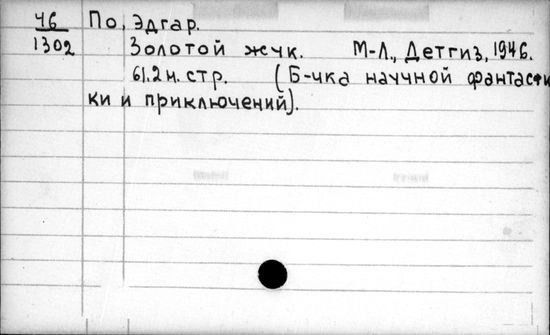 46 По, Эдгар.
1302 Золотой жук. М-Л., Детгиз, 1946.
61.2н.стр. (Б-чка научной фантасти
ки и приключений).